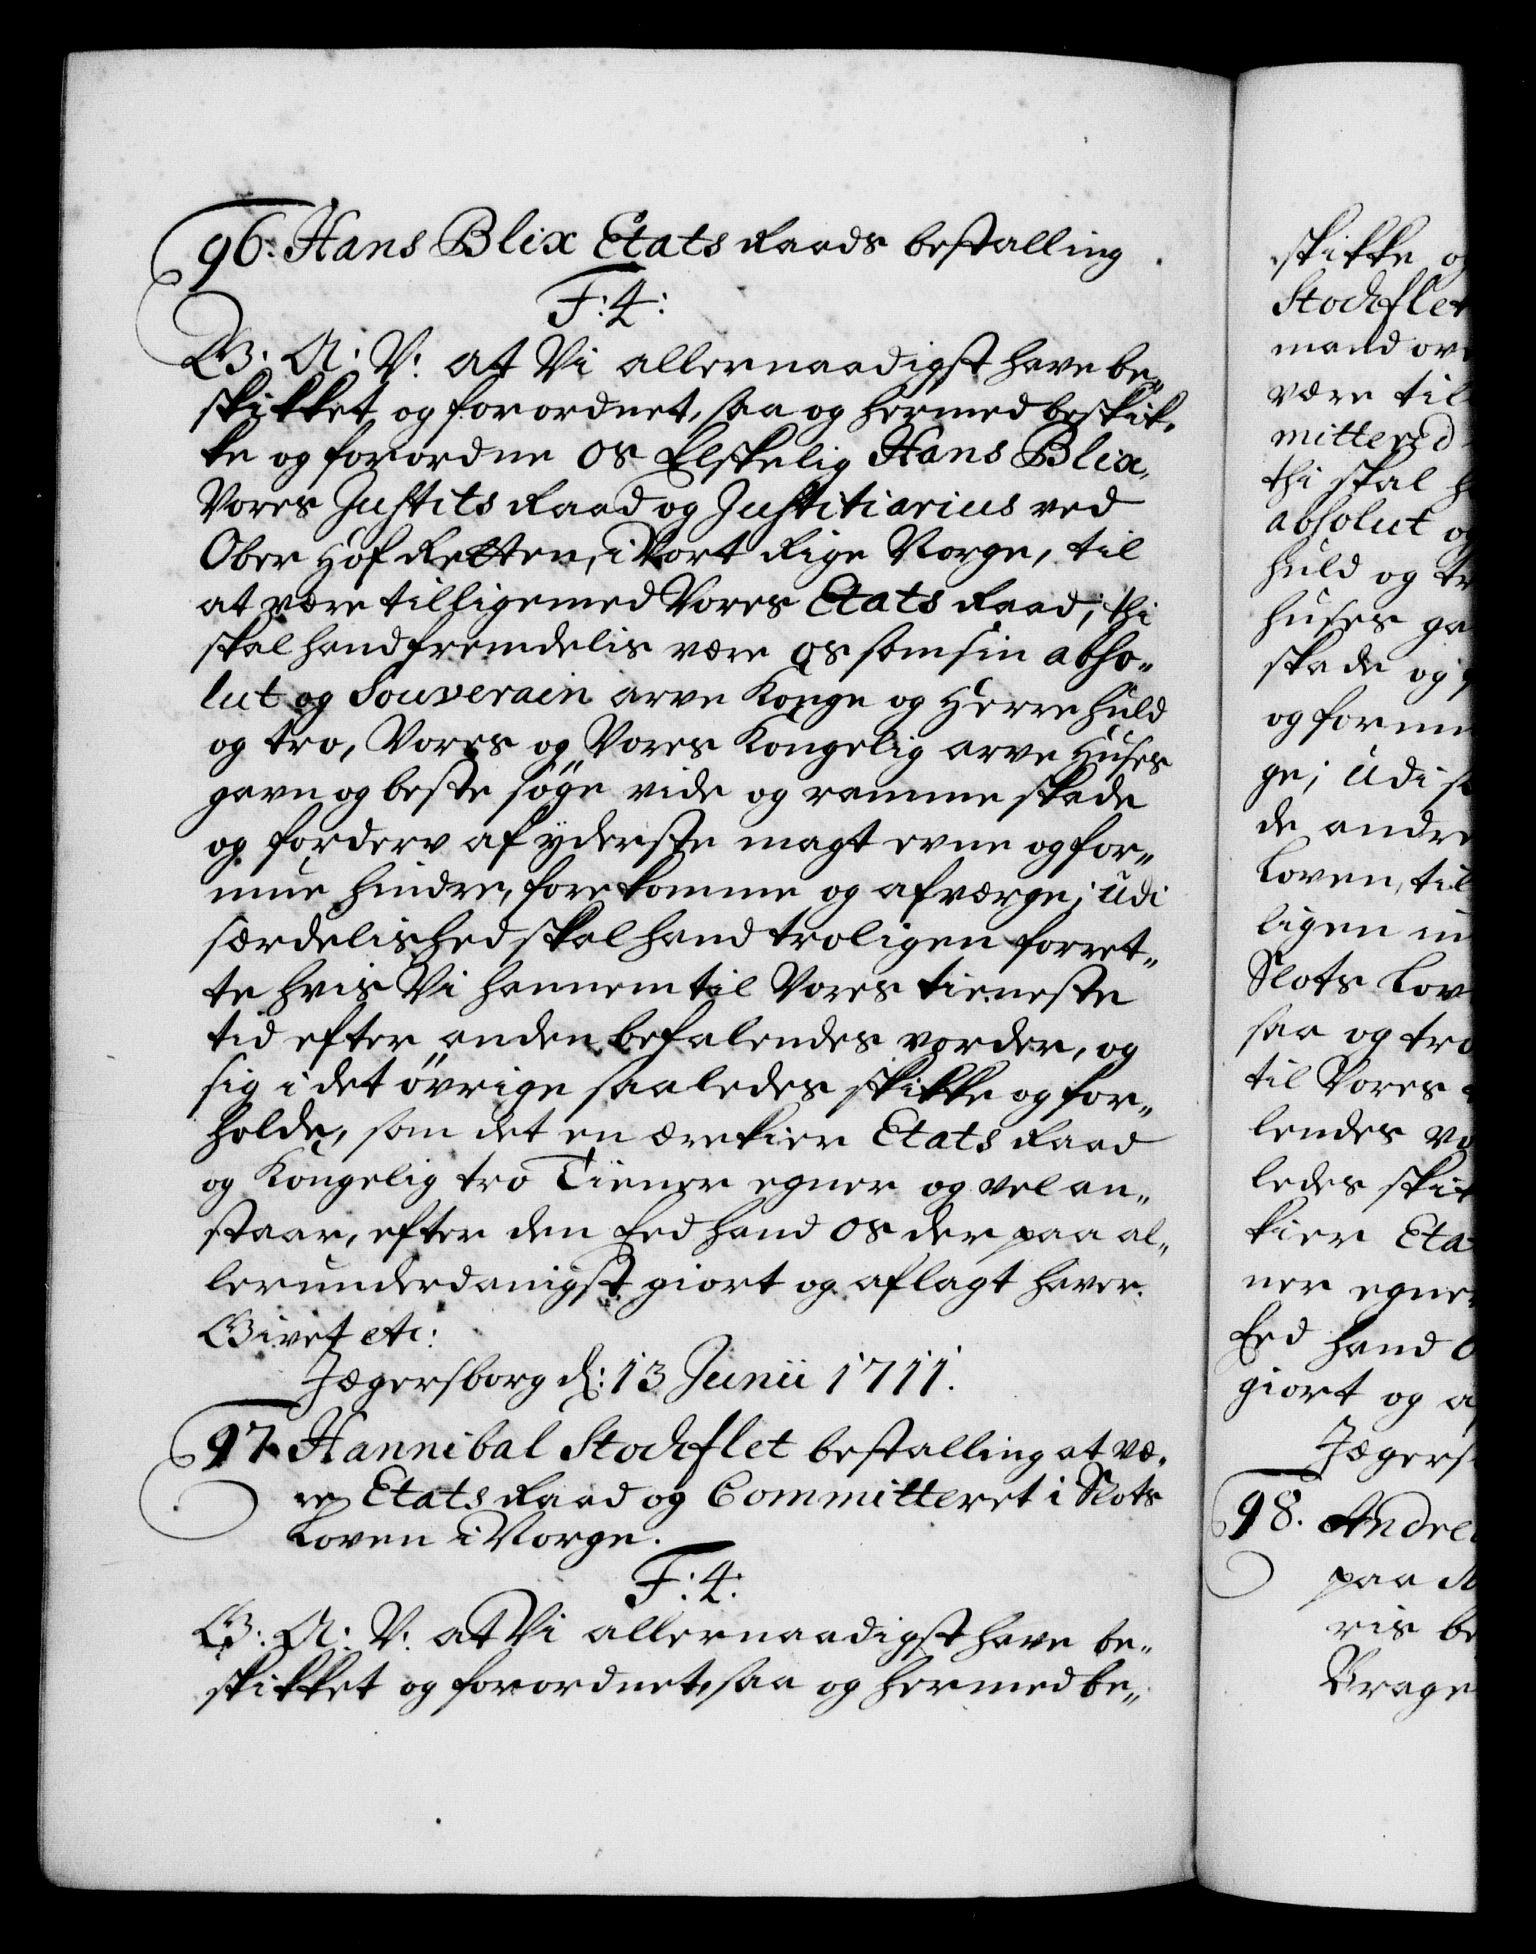 96. Hans Blix Etats Raads bestalling
F: 4:
G. A. V. at Vi allernaadigst have be„
skikket og forordnet, saa og hermed beskik„
ke og forordne Os Elskelig Hans Blix,
Vores Justits Raad og Justitiarius ved
Ober Hof Retten, i Vort Rige Norge, til
at være tilligemed Vores Etats Raad; thi
skal hand fremdelis være Os som sin abso„
lut og Souverain arve Konge og Herre huld
og tro, Vores og Vores Kongelig arve Huses
gavn og beste søge vide og ramme skade
og forderv af yderste magt evne og for„
mue hindre, forekomme og afværge; Udi
særdelished skal hand troligen forret„
te hvis Vi hannem til Vores tieneste
tid efter anden befalendes vorder, og
sig i det øvrige saaledes skikke og for„
holde, som det en ærekier Etats Raad
og Kongelig tro Tiener egner og vel an„
staar, efter den Eed hand Os der paa al„
lerunderdanigst giort og aflagt haver.
Givet etc:
Jægersborg d: 13 Junii 1711.
97. Hannibal Stockflet bestalling at væ„
re Etats Raad og Committeret i Slots
Loven i Norge.
F: 4:
G. A. V. at Vi allernaadigst have be„
skikket og forordnet, saa og hermed be„
skikke og
Stockflet
mand ov
være til
mittered
thi skal h
absolut og
huld og tr
huses ga
skade og
og formu
ge; Udi s
de andre
Loven, til
ligen in
Slots Lov
saa og tro
til Vores
lendes vo
ledes skik
kier Eta
ner egner
Eed hand O
giort og a
Jægers
98. Andre
paa
ris be
Brage